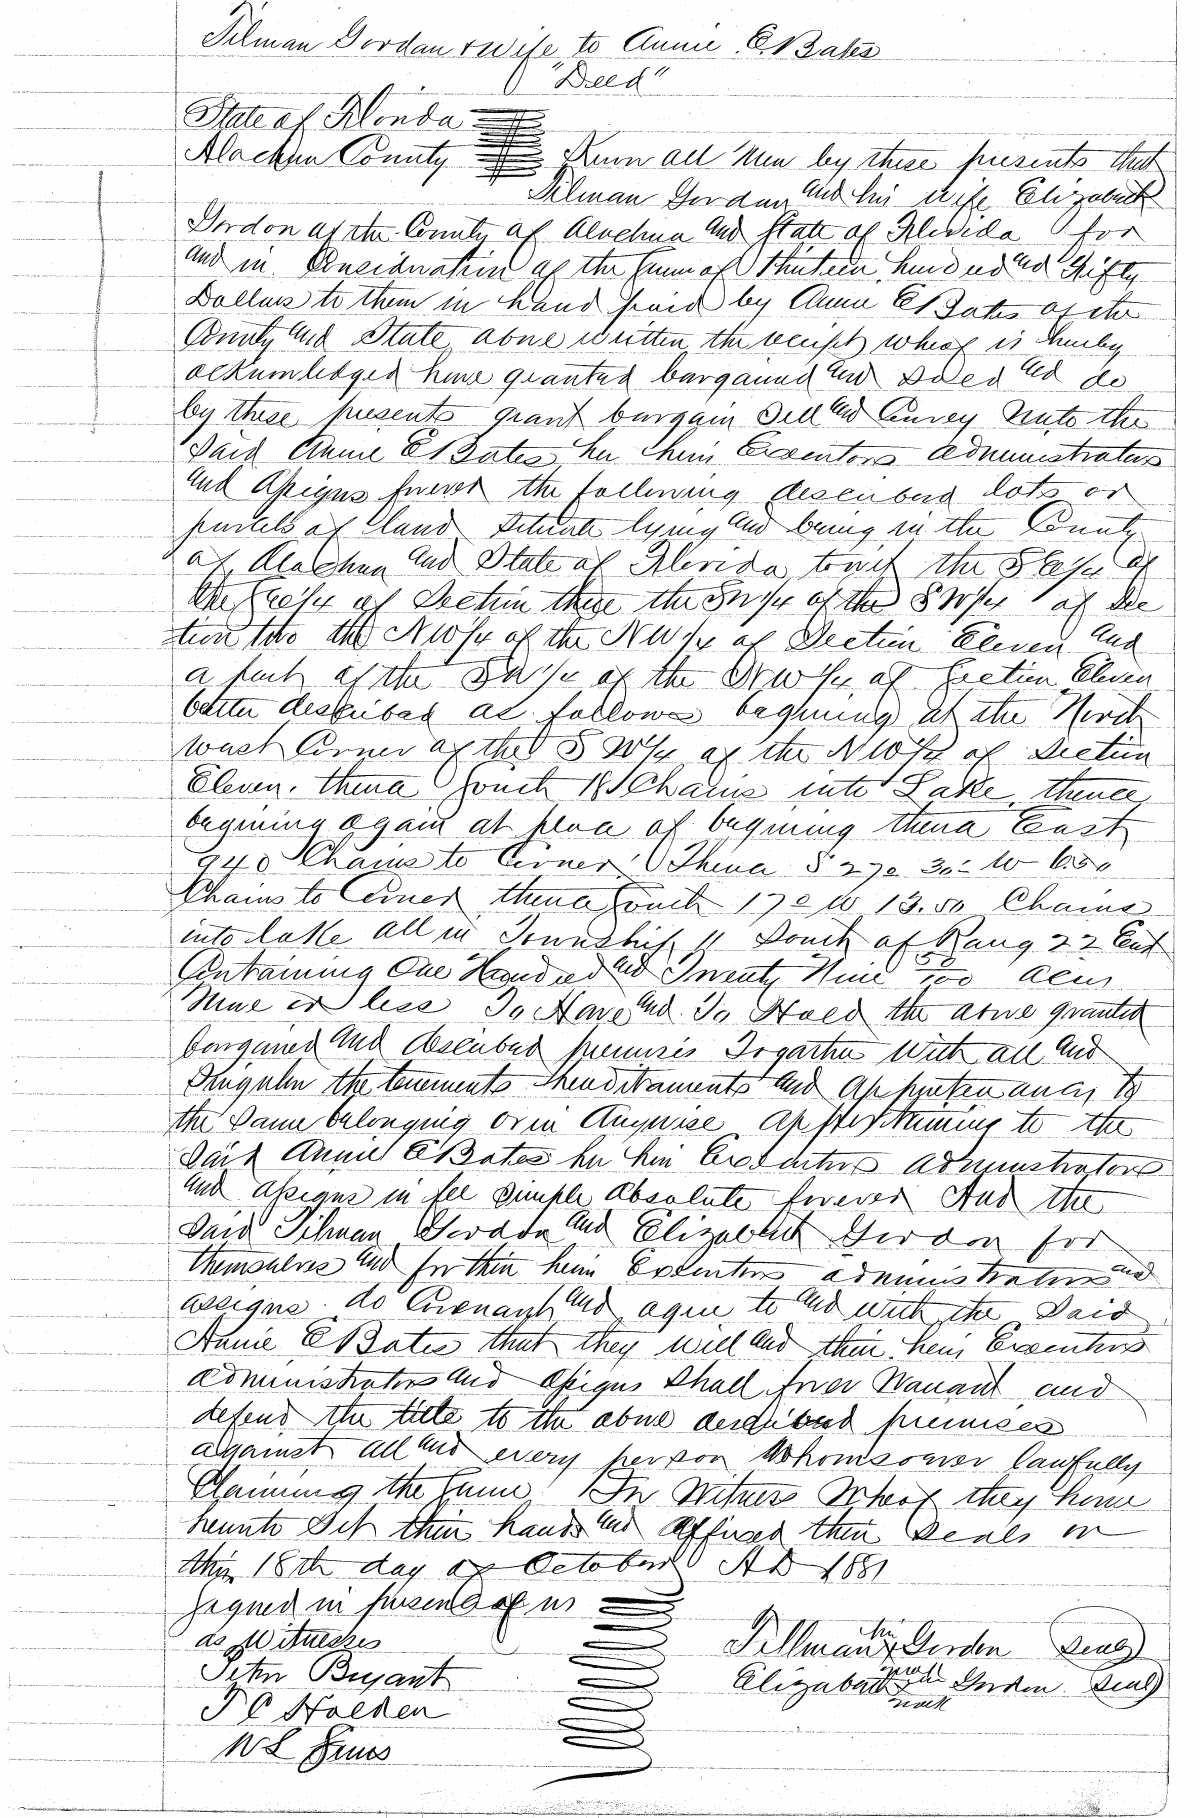 Tilman Gordan & wife to Annie E Bates
"Deed"
State of Florida
Alachua County Know all Men by these presents that
Tilman Gordan and his wife Elizabeth
Gordon of the County of Alachua and State of Florida for
and in Consideration of the Sum of Thirteen hundred and Fifty
Dollars to them in hand paid by Annie E Bates of the
County and State above written the receipt wheof is hereby
acknowledged have granted bargained and Soled and do
by these presents grant bargain Sell and Convey Unto the
Said Annie E Bates her heirs Executors administrators
and assigns forever the following described lots or
parcels of land Situate lying and being in the County
of Alachua and State of Florida towit the S E 1/4 of
the S E 1/4 of Section three the SW 1/4 of the S W 1/4 of Sec
tion two the N W 1/4 of the N W 1/4 of Section Eleven and
a part of the S W 1/4 of the N W 1/4 of Section Eleven
better described as follows begining at the North
west Corner of the S W 1/4 of the N W 1/4 of Section
Eleven. thence South 18 Chains into Lake, thence
begining again at place of begining thence East
940 Chains to Corner. Thence S 27° 30' W 6.50
Chains to Corner thence South 17° W 13.50 Chains
into lake all in Township 11 South of Rang 22 East
Containing One Hundred and Twenty Nine 50/100 acres
More or less To Have and To Hold the above granted
bargained and described premises Togather With all and
Singular the tenements hereditaments and appurtenances to
the Same belonging or in Anywise appertaining to the
Said Annie E Bates her heirs Executors administrators
and assigns in fee Simple absolute forever And the
Said Tilman Gordon and Elizabeth Gordon for
themselves and for thier heirs Executors administrators and
assigns. do Covenant and agree to and with the Said
Annie E Bates that they will and their heirs Executors
administrators and assigns Shall forever Warrant and
defend the title to the above described premises
against all and every person Whomsoever lawfully
Claiming the Same In Witness Wheof they have
hereunto Set their hands and Affixed their Seals on
this 18th day of October A D 1881
Signed in presence of us
as Witnesses
Tillman his Gordon (Seal)
Peter Bryant
Elizabeth mark Gordon (Seal)
mark
T C Holden
W L Sims